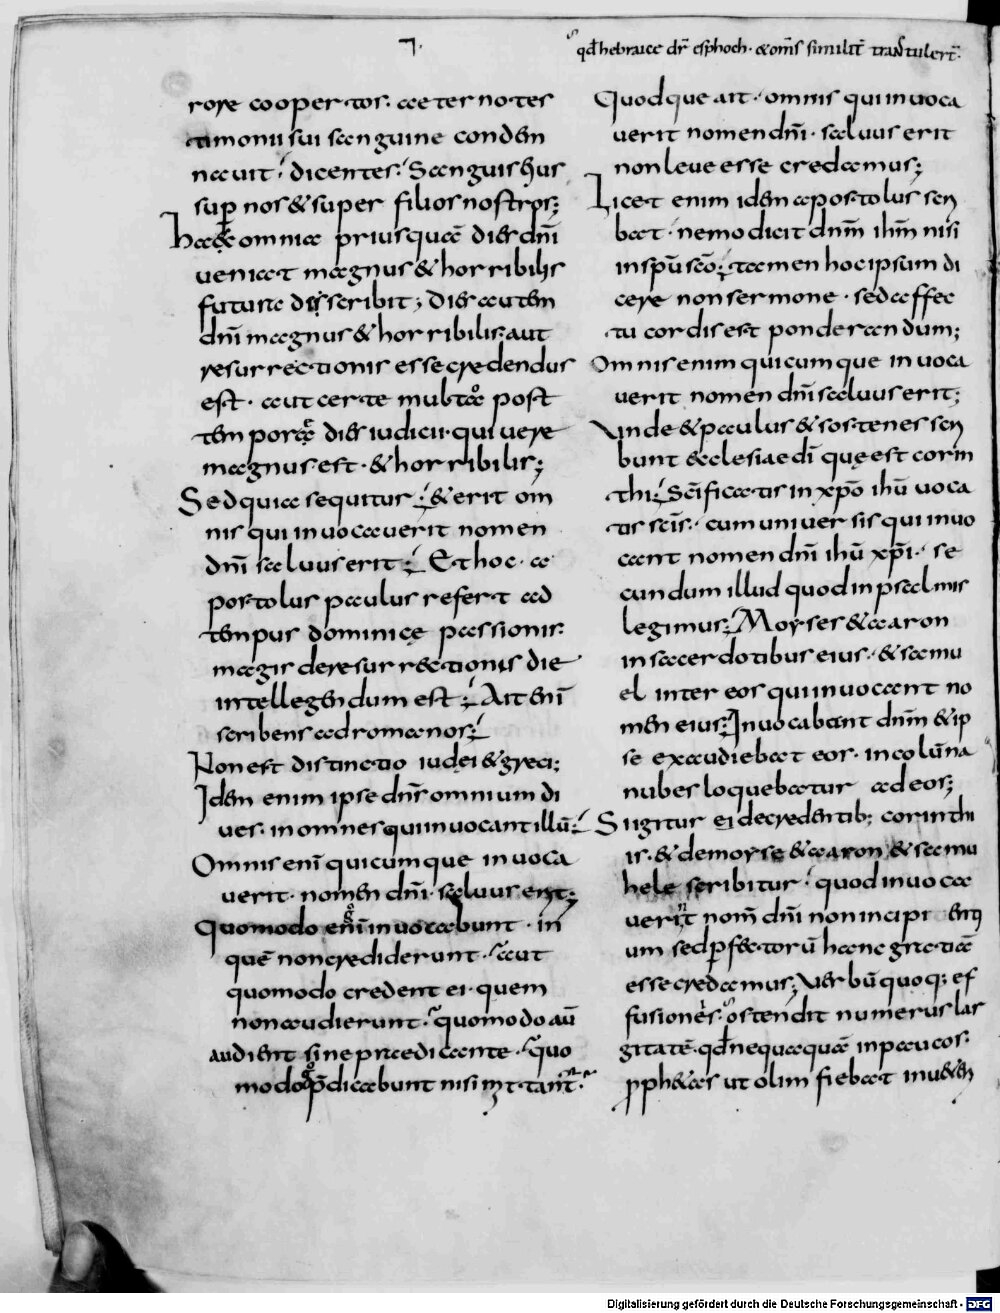 ⁊·
qđ hebraice dr̄ esphoch · & om̄s similit̄ transtuler̄t·
rore coopertos. aeternotes
timonii sui sanguine conden
nauit; dicentes; Sanguis hus
sup̱ nos & super filios nostros;
haec omnia priusquā dies dn̄i
ueniat magnus & horribilis
futura discribit; dies autem
dn̄i magnus & horribilis. aut
resurrectionis esse credendus
est · aut certe multo post
tempore dies iudicii · qui uere
magnus est · & horribilis;
Sed quia sequitur; & erit om
nis qui inuocauerit nomen
dn̄i saluus erit; Et hoc · a
postolus paulus refert ad
tempus dominicę passionis·
magis de resurrectionis die
intellegendum est; Ait eni̅
scribens ad romanos;
Non est distinctio iudei & greci;
Idem enim ipse dn̄s omnium di
ues · in omnes qui inuocant illū;
Omnis eni̅ quicumque inuoca
uerit · nomen dn̄i · saluus erit;
Quomodo eni̅ inuocabunt · in
quē non crediderunt · aut
quomodo credent ei · quem
non audierunt · quomodo aū
audient sine praedicante · quo
modo p̄dicabunt nisi mittant̄·
Quodque ait · omnis qui inuoca
uerit nomen dn̄i · saluus erit
non leue esse credamus;
Licet enim idem apostolus scri
bat · nemo dicit dnm̄ ihm̄ nisi
in spū scō; tamen hoc ipsum di
cere non sermone · sed affec
tu cordis est ponderandum;
Omnis enim quicumque inuoca
uerit nomen dn̄i saluus erit;
Unde & paulus & sostenes scri
bunt ecclesiae di̅ quę est corin
thi; Sc̄ificatis in xp̄o ihū uoca
tis sc̄is · cum uniuersis qui inuo
cant nomen dn̄i ihū xp̄i · se
cundum illud quod in psalmis
legimus; Moyses & aaron
in sacerdotibus eius · & samu
el inter eos qui inuocant no
men eius; Inuocabant dnm̄ & ip
se exaudiebat eos · in colūna
nubes loquebatur ad eos;
Si igitur ei de credentib; corinthi
is · & de moyse & aaron & samu
hele scribitur · quod inuoca
uerint nom̄ dn̄i non incipientiū
um sed p̱fectorū hanc gratiā
esse credamus; Uerbū quoq; ef
fusionis · ostendit numerus las
gitatē · qđ nequaquā in paucos·
proph&as ut olim fiebat in u&eri
Digitalisierung gefördert durch die Deutsche Forschungsgemeinschaft - DFG